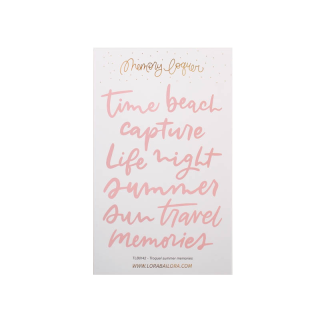 time beach
capture
life night
summer
sun travel
memories
WWW.LORABAILORA.COM